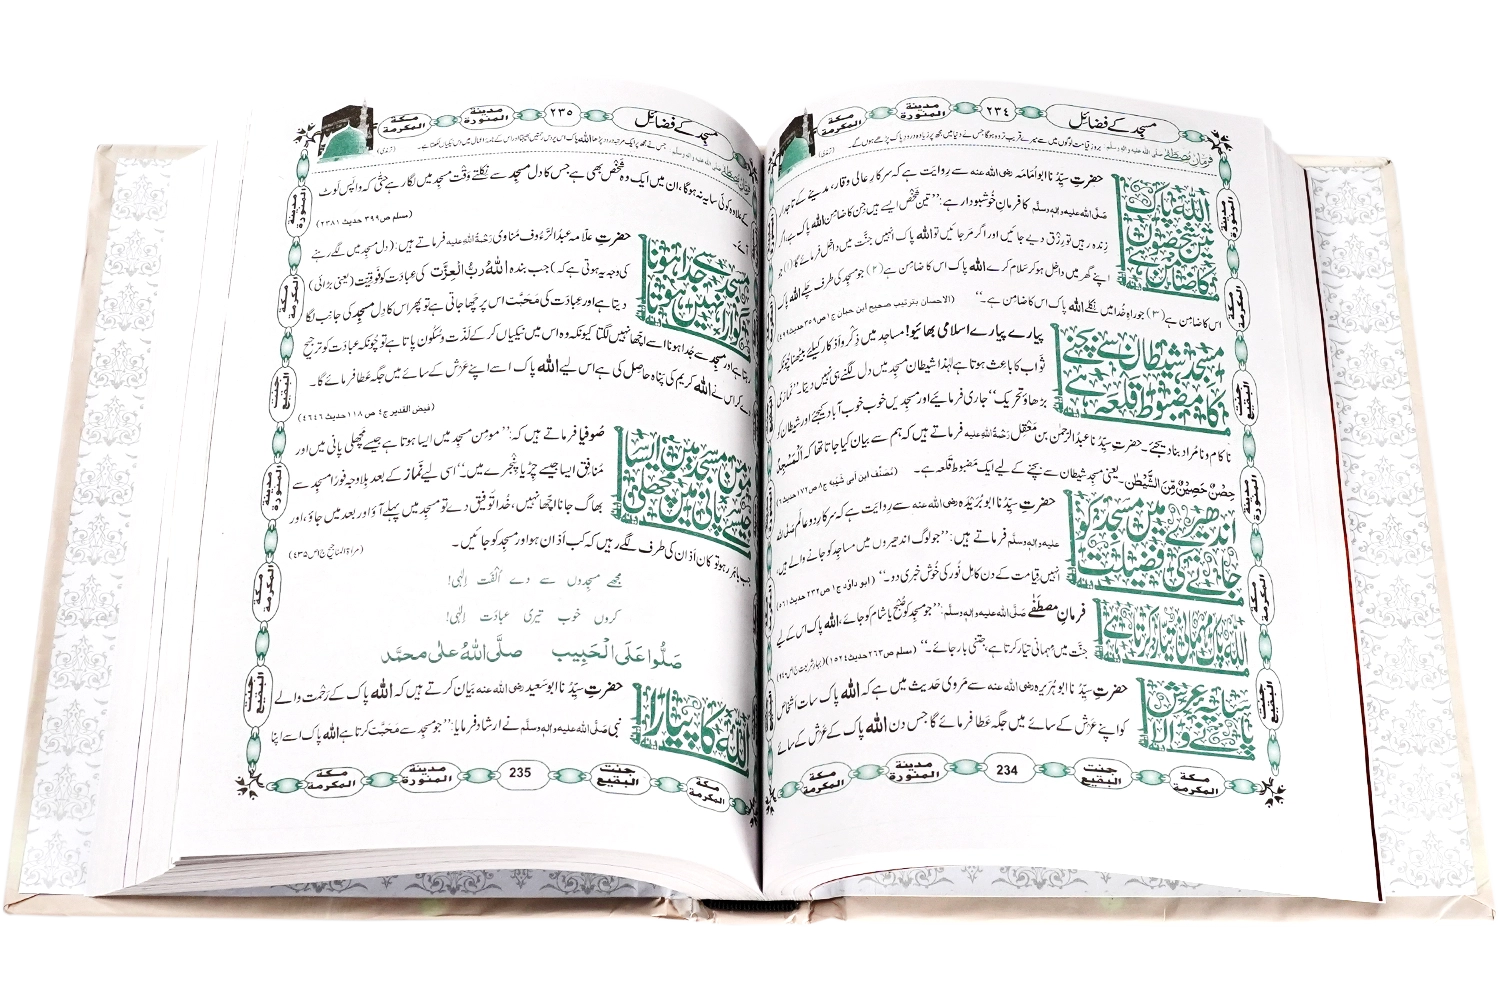 مسجد کے فضائل
۲۳٤
مدينة المنورة
مكة المكرمة
فرمانِ مصطفٰے صلی اللہ علیہ واٰلہٖ وسلم: بروزِ قیامت لوگوں میں سے میرے قریب تر وہ ہوگا جس نے دنیا میں مجھ پر زیادہ درود پاک پڑھے ہوں گے۔ (ترمذی)
اللہ پاک تین شخصوں کا ضامن ہے
حضرتِ سیِّدُنا ابو اُمامہ رضی اللہ عنہ سے روایت ہے کہ سرکارِ عالی وقار، مدینے کے تاجدار
صَلَّی اللہ علیہ واٰلہٖ وسلَّم کا فرمانِ خوشبودار ہے: ’’تین شخص ایسے ہیں جن کا ضامِن اللہ پاک ہے، اگر
زِندہ رہیں تو رِزْق دیے جائیں اور اگر مَر جائیں تو اللہ پاک انہیں جنّت میں داخِل فرمائے گا (۱) جو
اپنے گھر میں داخِل ہو کر سلام کرے اللہ پاک اس کا ضامِن ہے (۲) جو مسجد کی طرف چلے اللہ پاک
اس کا ضامِن ہے (۳) جو راہِ خُدا میں نکلے اللہ پاک اس کا ضامِن ہے۔‘‘ (الاحسان بترتیب صحیح ابن حبان ج۱ ص۳۵۹ حدیث
مسجد شیطان سے بچنے کا مضبوط قلعہ ہے
پیارے پیارے اسلامی بھائیو! مساجد میں ذِکْر و اَذکار کیلئے بیٹھنا چونکہ
ثواب کا باعِث ہوتا ہے لہٰذا شیطان مسجد میں دل لگنے ہی نہیں دیتا۔ ’’نَمازی
بڑھاؤ تحریک‘‘ جاری فرمائیے اور مسجدیں خوب خوب آباد کیجئے اور شیطان کو
ناکام و نامُراد بنا دیجئے۔ حضرتِ سیِّدُنا عبدُالرّحمٰن بن مَعْقِل رَحمۃُ اللہِ علیہ فرماتے ہیں کہ ہم سے بیان کیا جاتا تھا کہ اَلْمَسْجِدُ
حِصْنٌ حَصِیْنٌ مِّنَ الشَّیْطٰن۔ یعنی مسجِد شیطان سے بچنے کے لیے ایک مَضبوط قَلعہ ہے۔ (مُصَنَّف ابن اَبی شَیْبہ ج۸ ص۱۷۲ حدیث
اندھیرے میں مسجد کو جانے کی فضیلت
حضرتِ سیِّدُنا ابو بُرَیْدہ رضی اللہ عنہ سے رِوایت ہے کہ سرکارِ دو عالَم صَلَّی اللہ
علیہ واٰلہٖ وسلَّم فرماتے ہیں: ’’جو لوگ اندھیروں میں مساجد کو جانے والے ہیں،
انہیں قِیامت کے دن کامل نُور کی خُوش خبری دو۔‘‘ (ابو داوٗد ج۱ ص۲۳۲ حدیث٥٦١)
اللہ پاک مہمانی تیار کرتا ہے
فرمانِ مصطفٰے صَلَّی اللہ علیہ واٰلہٖ وسلَّم: ’’جو مسجد کو صُبْح یا شام کو جائے، اللہ پاک اس کے لیے
جنّت میں مہمانی تیّار کرتا ہے، جتنی بار جائے۔‘‘ (مسلم ص۲٦۳ حدیث۱۵۲٤)
سایۂ عرش پانے والا
حضرتِ سیِّدُنا ابو ہُریرہ رضی اللہ عنہ سے مَروی حَدیث میں ہے کہ اللہ پاک سات اَشخاص
کو اپنے عَرْش کے سائے میں جگہ عَطا فرمائے گا جس دن اللہ پاک کے عَرْش کے سائے
مكة المكرمة
مدينة المنورة
234
جنت البقيع
مكة المكرمة
مسجد کے فضائل
۲۳۵
مدينة المنورة
مكة المكرمة
فرمانِ مصطفٰے صلی اللہ علیہ واٰلہٖ وسلم: جس نے مجھ پر ایک مرتبہ درود پڑھا اللہ پاک اس پر دس رحمتیں بھیجتا اور اس کے نامۂ اعمال میں دس نیکیاں لکھتا ہے۔ (ترمذی)
کے علاوہ کوئی سایہ نہ ہوگا، ان میں ایک وہ شَخْص بھی ہے جس کا دل مسجد سے نکلتے وَقْت مسجد میں لگا رہے حتّٰی کہ واپَس لَوٹ
آئے۔ (مسلم ص۳۹۹ حدیث ۲۳۸۱)
مسجد سے جدا ہونا گوارا نہیں ہوتا
حضرتِ علّامہ عبدُالرَّءوف مُناوی رَحْمۃُ اللہِ علیہ فرماتے ہیں: (دل مسجد میں لگے رہنے
کی وجہ یہ ہوتی ہے کہ) جب بندہ اللہُ ربُّ الْعِزَّت کی عبادَت کو فوقِیّت (یعنی بڑائی)
دیتا ہے اور عبادَت کی مَحبَّت اس پر چھا جاتی ہے تو پھر اس کا دل مسجد کی جانب لگا
رہتا ہے اور مسجد سے جُدا ہونا اسے اچھا نہیں لگتا کیونکہ وہ اس میں نیکیاں کر کے لذّت و سُکون پاتا ہے تو چونکہ عبادَت کو ترجیح
دے کر اس نے اللہ کریم کی پناہ حاصِل کی ہے اس لیے اللہ پاک اسے اپنے عَرْش کے سائے میں جگہ عَطا فرمائے گا۔
(فیض القدیر ج٤ ص ۱۱۸ حدیث ٤٦٤٦)
مومن مسجد میں ایسا جیسے پانی میں مچھلی
صُوفیا فرماتے ہیں کہ: ’’مومِن مسجد میں ایسا ہوتا ہے جیسے مچھلی پانی میں اور
مُنافِق ایسا جیسے چِڑیا پِنْجرے میں۔‘‘ اسی لیے نَماز کے بعد بِلا وجہ فورًا مسجد سے
بھاگ جانا اچھا نہیں، خُدا توفیق دے تو مسجد میں پہلے آؤ اور بعد میں جاؤ، اور
جب باہَر رہو تو کان اَذان کی طرف لگے رہیں کہ کب اَذان ہو اور مسجد کو جائیں۔ (مراٰۃ المناجیح ج۱ ص ٤٣٥)
مجھے مسجدوں سے دے اُلفت الٰہی!
کروں خوب تیری عبادَت الٰہی!
صَلُّوا عَلَی الْحَبِیب صلَّی اللہُ علٰی محمَّد
اللہ کا پیارا
حضرتِ سیِّدُنا ابو سَعید رضی اللہ عنہ بیان کرتے ہیں کہ اللہ پاک کے رَحْمت والے
نبی صَلَّی اللہ علیہ واٰلہٖ وسلَّم نے ارشاد فرمایا: ’’جو مسجد سے مَحَبَّت کرتا ہے اللہ پاک اسے اپنا
مكة المكرمة
مدينة المنورة
235
جنت البقيع
مكة المكرمة